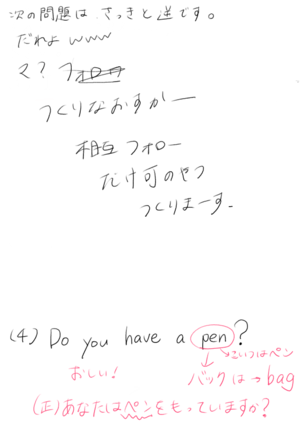 次の問題は、さっきと逆です。
だれよwww
え? フォロワ
つくりなおすかー
相互フォロー
だけ可のやつ
つくりまーす。
(4) Do you have a pen?
→こいつはペン
おしい!
バックは→bag
(正)あなたはペンをもっていますか?